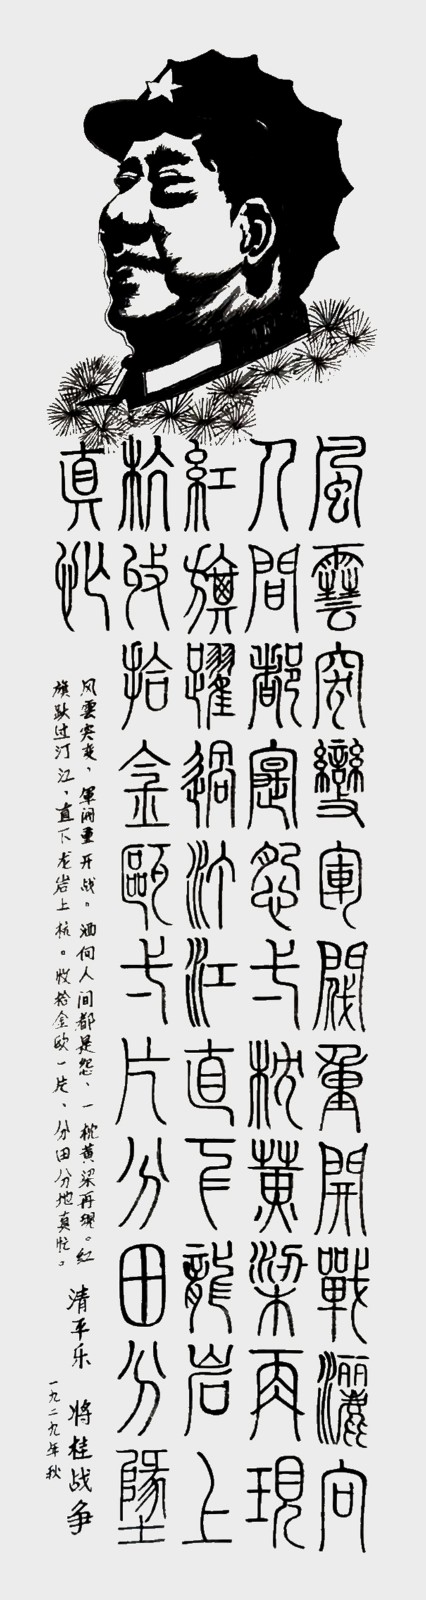 風雲突變軍閥重開戰灑向
人間都寔怨弌枕黃梁再現
紅旗躍過汀江直下龍岩上
杭收拾金甌弌片分田分墬
真忙
风雲突变、軍阀重开战。洒向人间都是怨、一枕黄梁再现。红
旗跃过汀江、直下龙岩上杭。收拾金欧一片、分田分地真忙。
清平乐 将桂战争
一九二九年秋